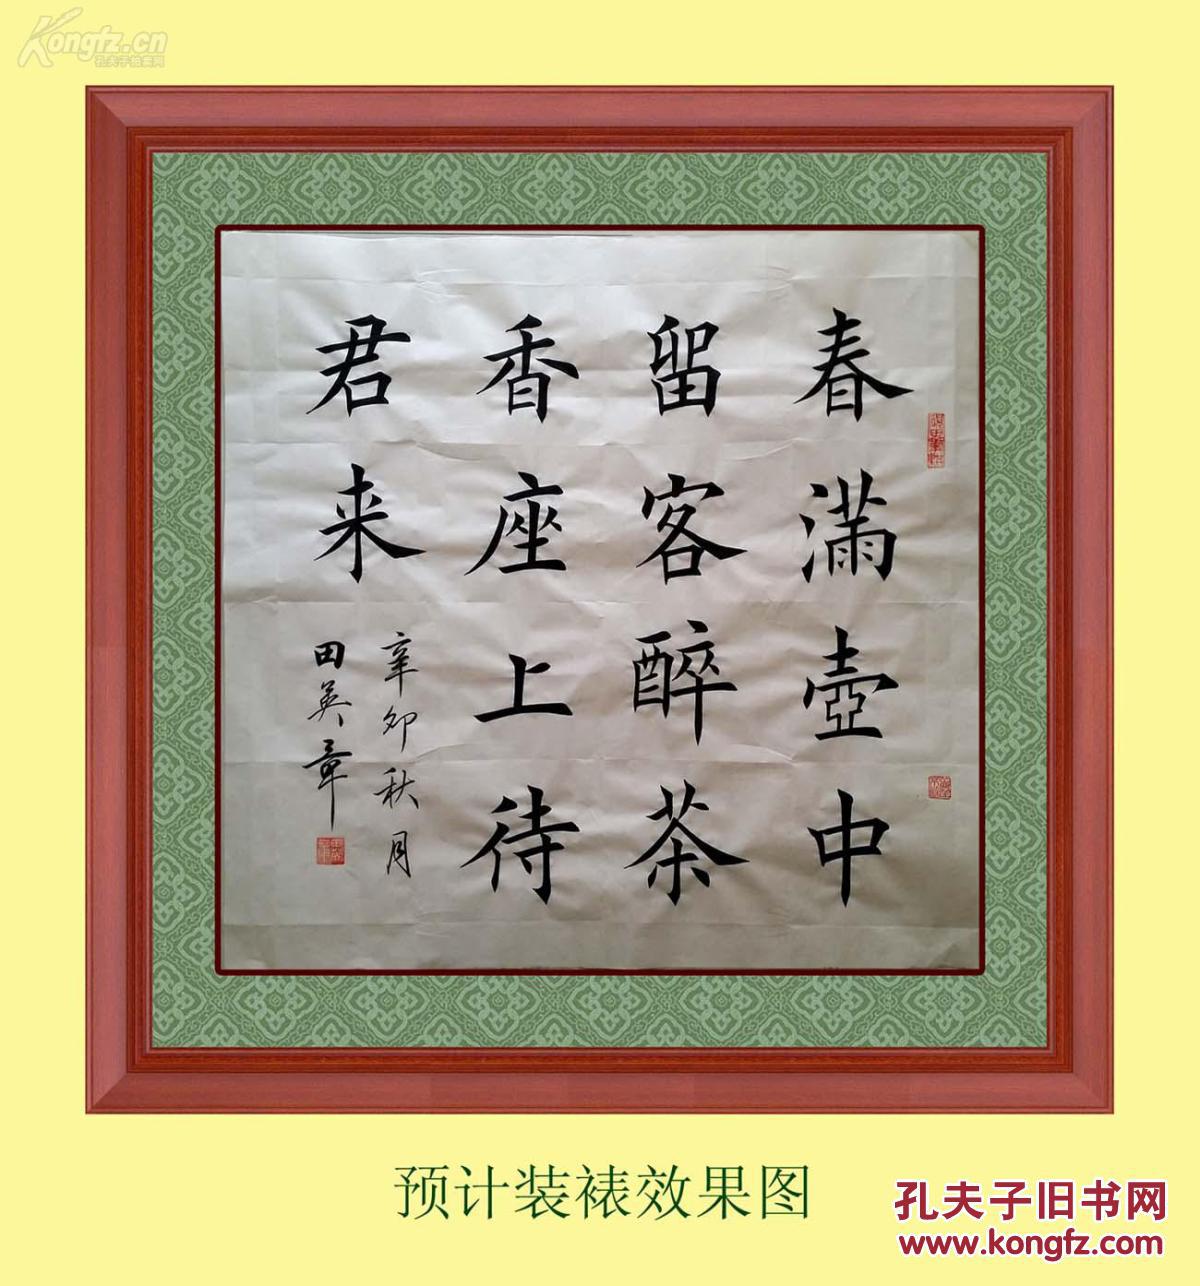 Kongfz.cn
孔夫子拍卖网
春满壶中
留客醉茶
香座上待
君来
辛卯秋月
田英章
预计装裱效果图
孔夫子旧书网
www.kongfz.com